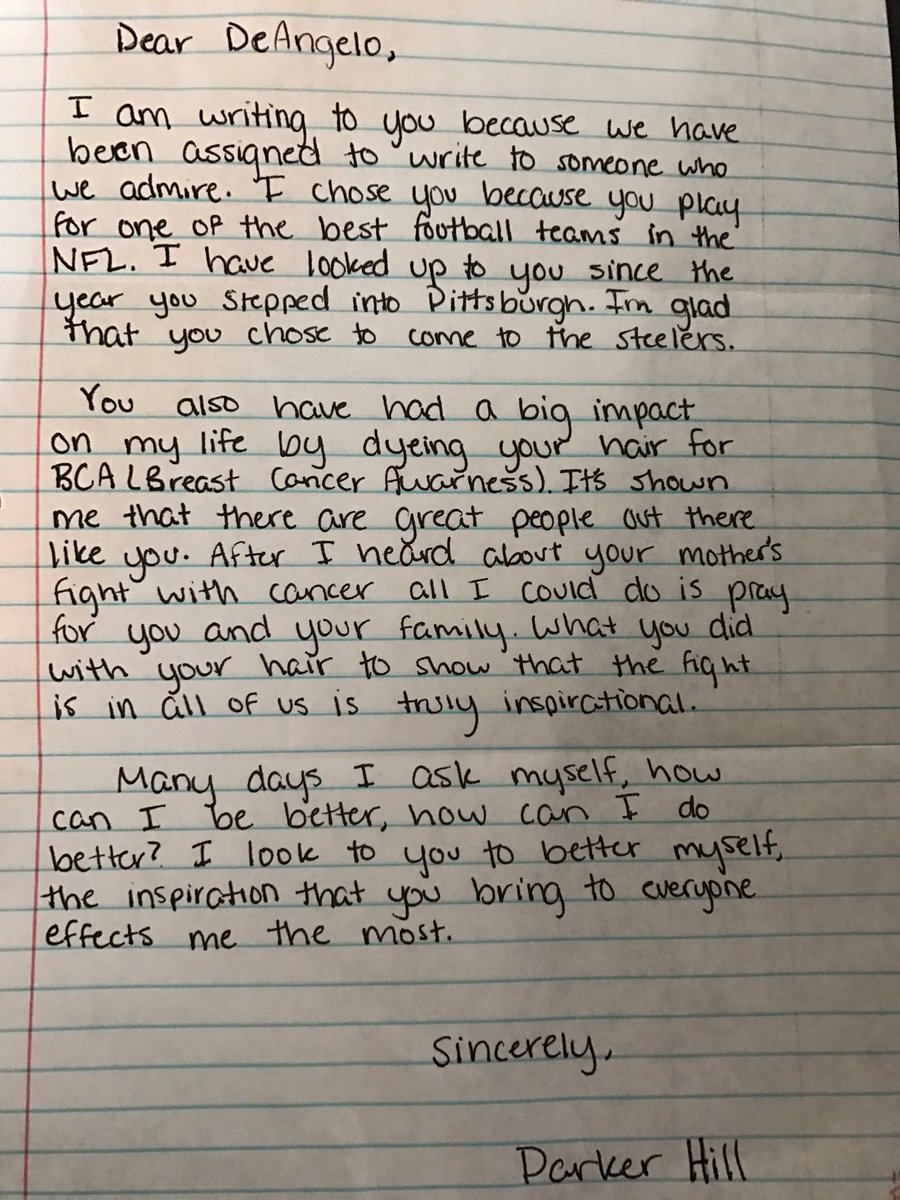 Dear DeAngelo,
I am writing to you because we have
been assigned to write to someone who
we admire. I chose you because you play
for one of the best football teams in the
NFL. I have looked up to you since the
year you stepped into Pittsburgh. I'm glad
that you chose to come to the steelers.
You also have had a big impact
on my life by dyeing your hair for
BCA (Breast Cancer Awarness). It's shown
me that there are great people out there
like you. After I heard about your mother's
fight with cancer all I could do is pray
for you and your family. What you did
with your hair to show that the fight
is in all of us is truly inspirational.
Many days I ask myself, how
can I be better, how can I do
better? I look to you to better myself,
the inspiration that you bring to everyone
effects me the most.
Sincerely,
Parker Hill